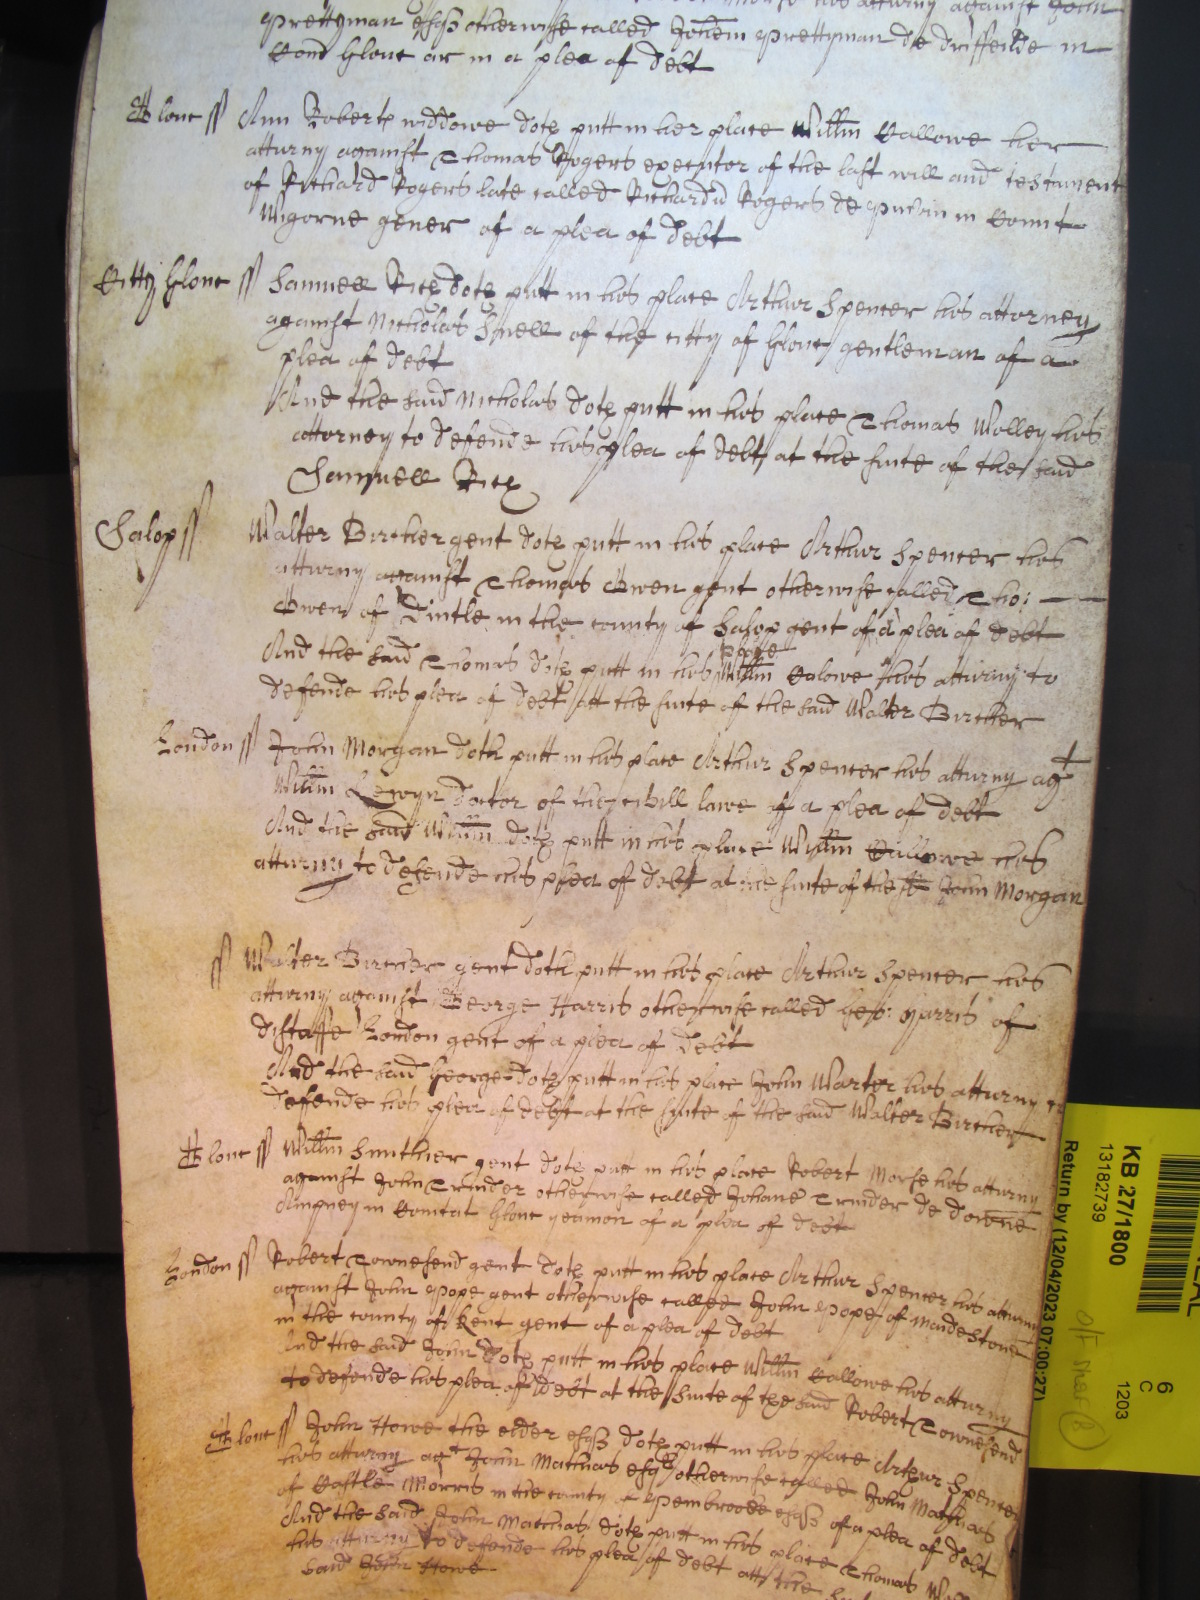 Prettyman esqr otherwise called Johem Prettyman de driffeilde in
Com Glouc ar in a plea of debt
Glouc ss Ann Roberts widdowe doth putt in her place Willm Callowe her
atturny against Thomas Rogers executor of the last will and testament
of Richard Rogers late called Richard Rogers de in Comit
Wigorne gener of a plea of debt
Citty Glouc ss Samuell Rich doth putt in his place Arthur Spencer his attorney
against Nicholas Snell of the citty of Glouc gentleman of a
plea of debt
And the said Nicholas doth putt in his place Thomas Wolley his
attorney to defende his plea of debt at the suite of the said
Samuell Rich
Salop ss Walter Bircher gent doth putt in his place Arthur Spencer his
atturny against Thomas Owen gent otherwise called Tho:
Owen of Dintle in the county of Salop gent of a plea of debt
And the said Thomas doth putt in his place Willm Calowe his atturny to
defende his plea of debt att the suite of the said Walter Bircher
London ss John Morgan doth putt in his place Arthur Spencer his atturny agt
Willm Lewyn doctor of the civill lawe of a plea of debt
And the said Willm doth putt in his place Willm Callowe his
atturny to defende his plea of debt at the suite of the sd John Morgan
ss Walter Bircher gent doth putt in his place Arthur Spencer his
atturny against George Harris otherwise called Geo: Harris of
distaffe London gent of a plea of debt
And the said George doth putt in his place John Warter his atturny to
deffende his plea of debt at the suite of the said Walter Bircher
Glouc ss Willm Smithier gent doth putt in his place Robert Morse his atturny
against John Trinder otherwise called Johane Trinder de downe
Ampney in Comitat Glouc yeamon of a plea of debt
London ss Robert Townesend gent doth putt in his place Arthur Spencer his atturny
against John Pope gent otherwise called John Pope of Maidestone
in the county of Kent gent of a plea of debt
And the said John doth putt in his place Willm Callowe his atturny
to defende his plea of debt at the suite of the said Robert Townesend
Glouc ss John Howe the elder esqr doth putt in his place Arthur Spencer
his atturny agt John Mathias esqr otherwise called John Mathias
of Castle Morris in the county of Pembroode esqr of a plea of debt
And the said John Mathias doth putt in his place Thomas
his atturny to defende his plea of debt att the
said John Howe
KB 27/1800
13182739
Return by (12/04/2023 07:00:27)
6
C
1203